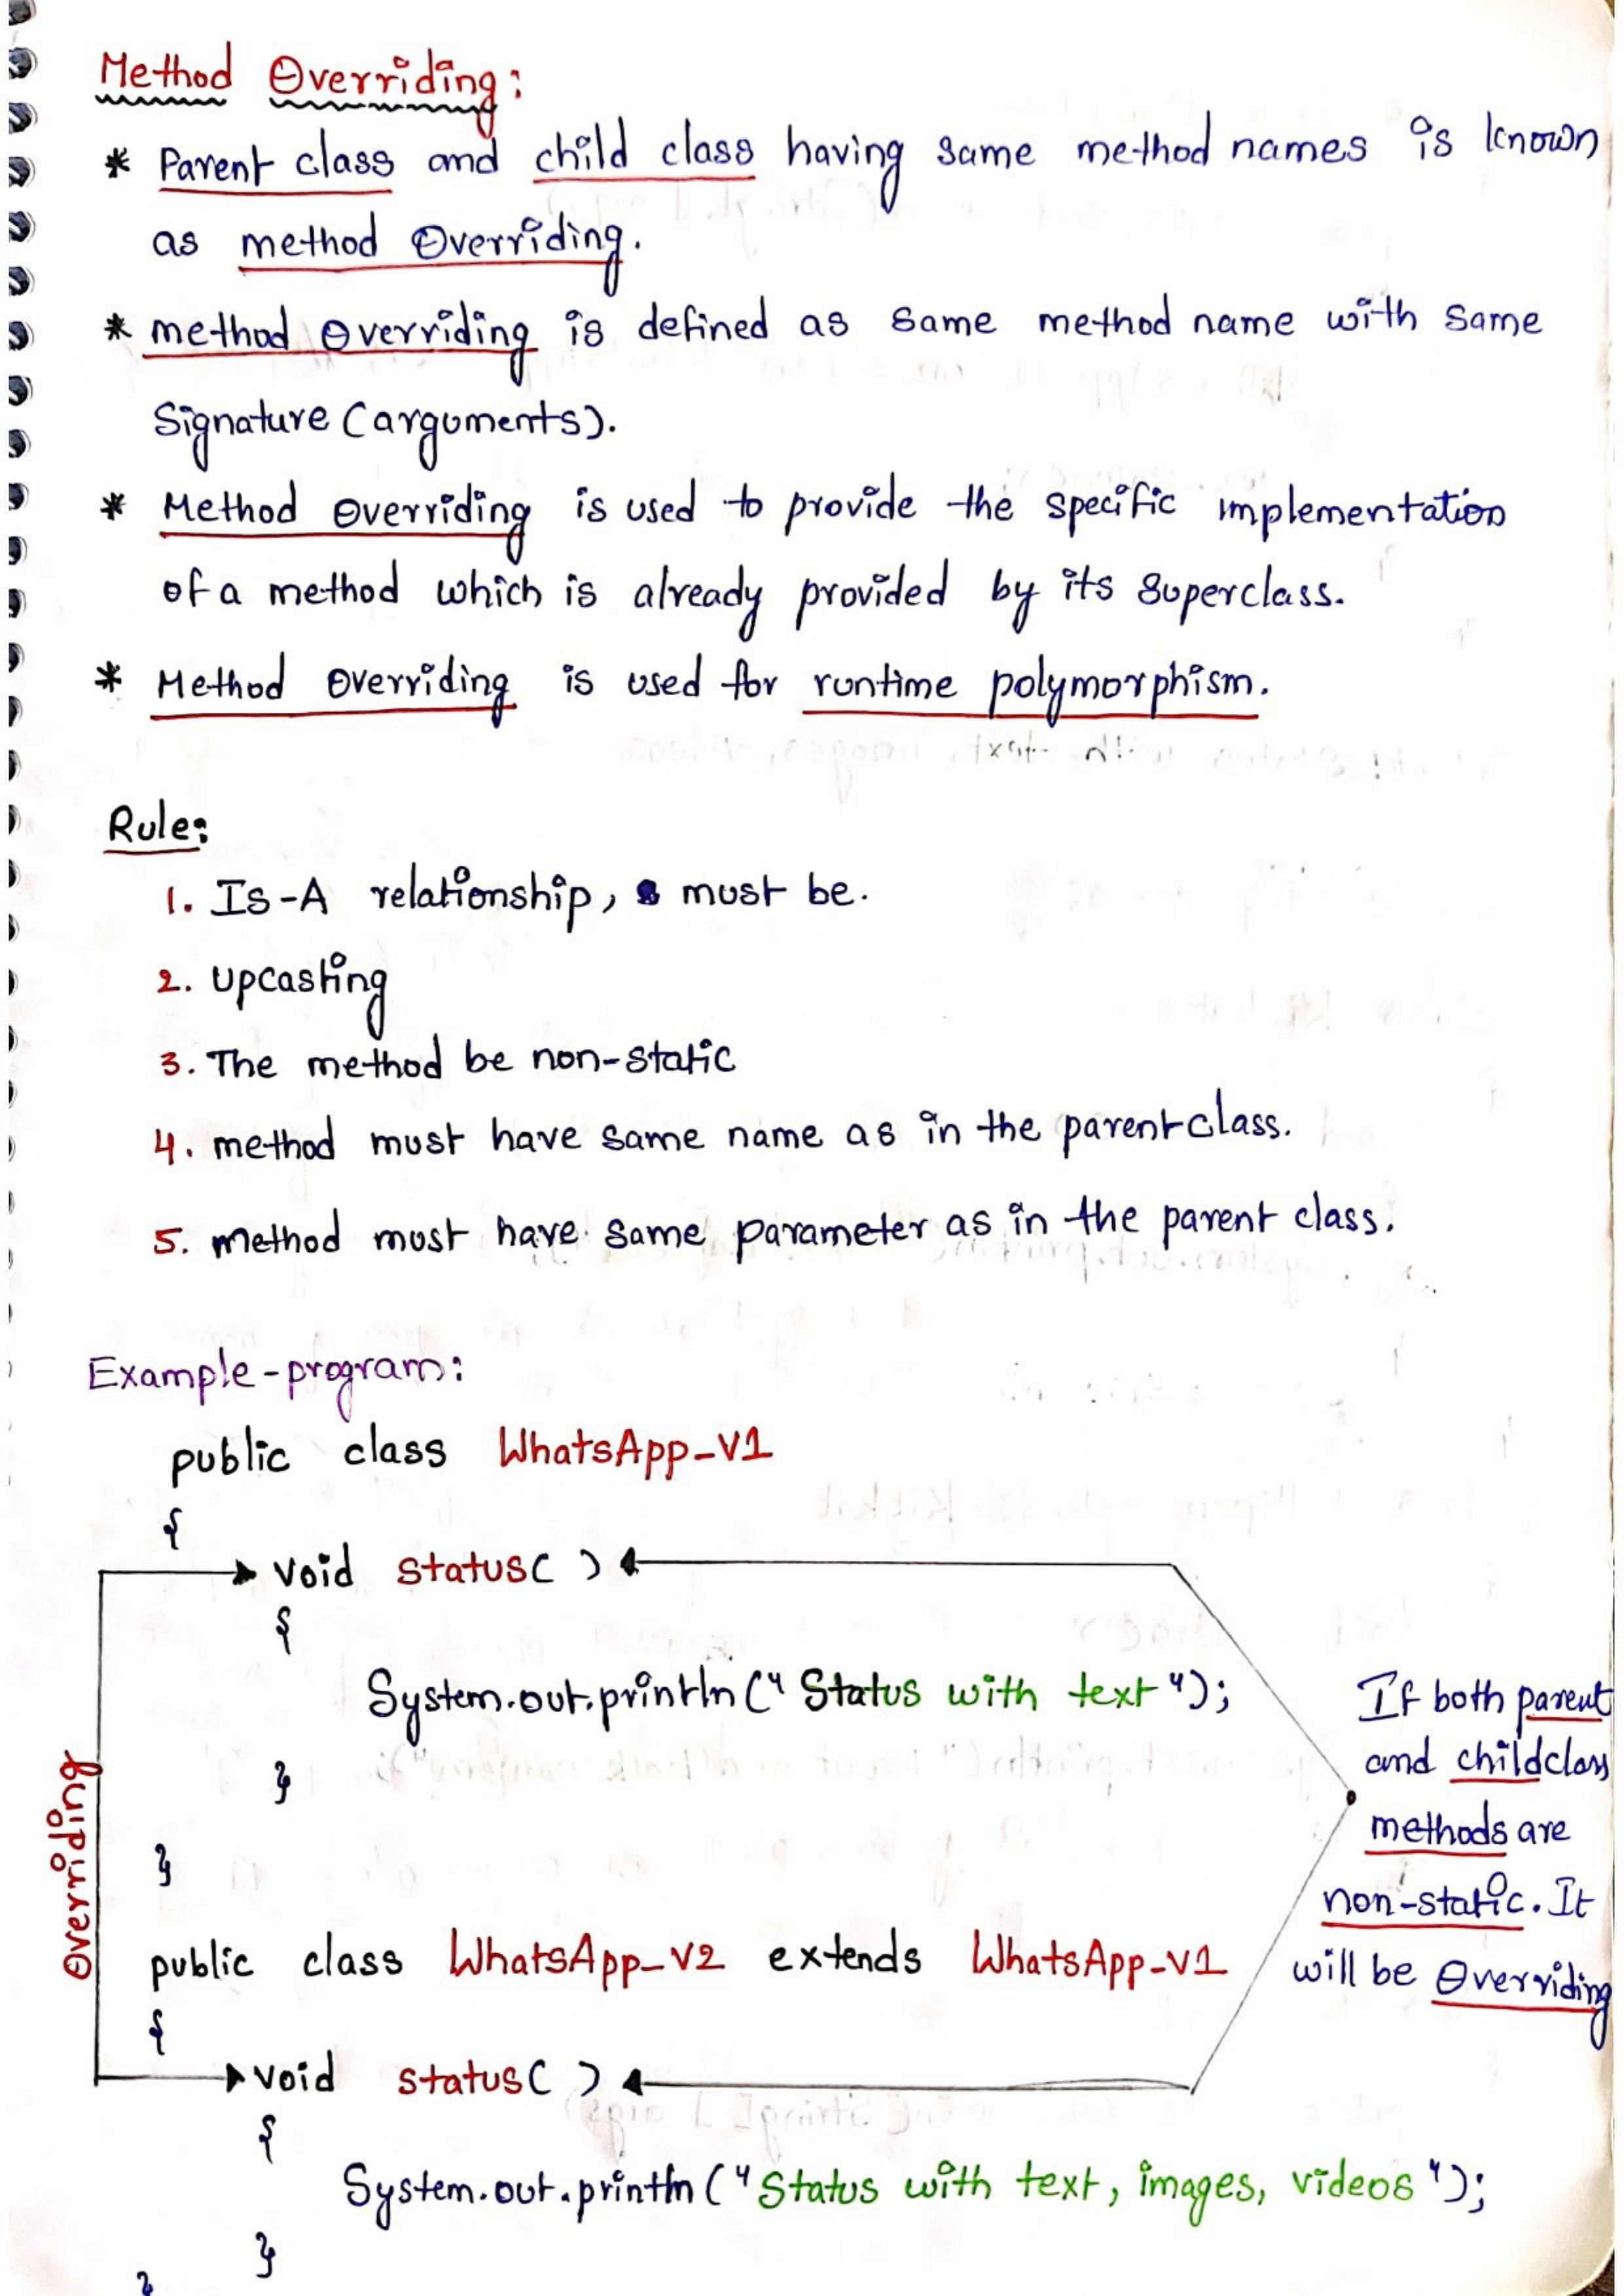 Method Overriding:
* Parent class and child class having same method names is known
as method Overriding.
* method Overriding is defined as same method name with same
Signature (arguments).
* Method Overriding is used to provide the specific implementation
of a method which is already provided by its Superclass.
* Method Overriding is used for runtime polymorphism.
Rule:
1. Is-A relationship, must be.
2. Upcasting
3. The method be non-static
4. method must have same name as in the parent class.
5. method must have same parameter as in the parent class.
Example-program:
public class WhatsApp_V1
{
void status( )
{
System.out.println("Status with text");
}
}
public class WhatsApp_V2 extends WhatsApp_V1
{
void status( )
{
System.out.println("Status with text, images, videos");
}
}
Overriding
If both parent
and childclass
methods are
non-static. It
will be Overriding